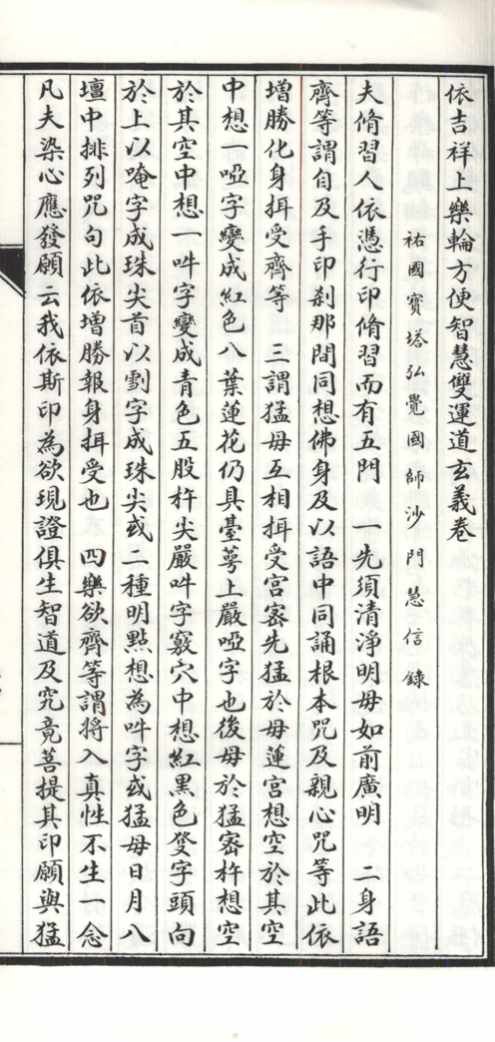 依吉祥上樂輪方便智慧雙運道玄義卷
祐國寶塔弘覺國師沙門慧信錄
夫脩習人依憑行印脩習而有五門　一先須清淨明母如前廣明　二身語
齊等謂自及手印剎那間同想佛身及以語中同誦根本咒及親心咒等此依
增勝化身揖受齊等　三謂猛母互相揖受宮密先猛於母蓮宮想空於其空
中想一啞字變成紅色八葉蓮花仍具臺萼上嚴啞字也後母於猛密杵想空
於其空中想一吽字變成青色五股杵尖嚴吽字竅穴中想紅黑色癹字頭向
於上以唵字成珠尖首以㗚字成珠尖或二種明點想為吽字或猛母日月八
壇中排列咒句此依增勝報身揖受也　四樂欲齊等謂將入真性不生一念
凡夫染心應發願云我依斯印為欲現證俱生智道及究竟菩提其印願與猛